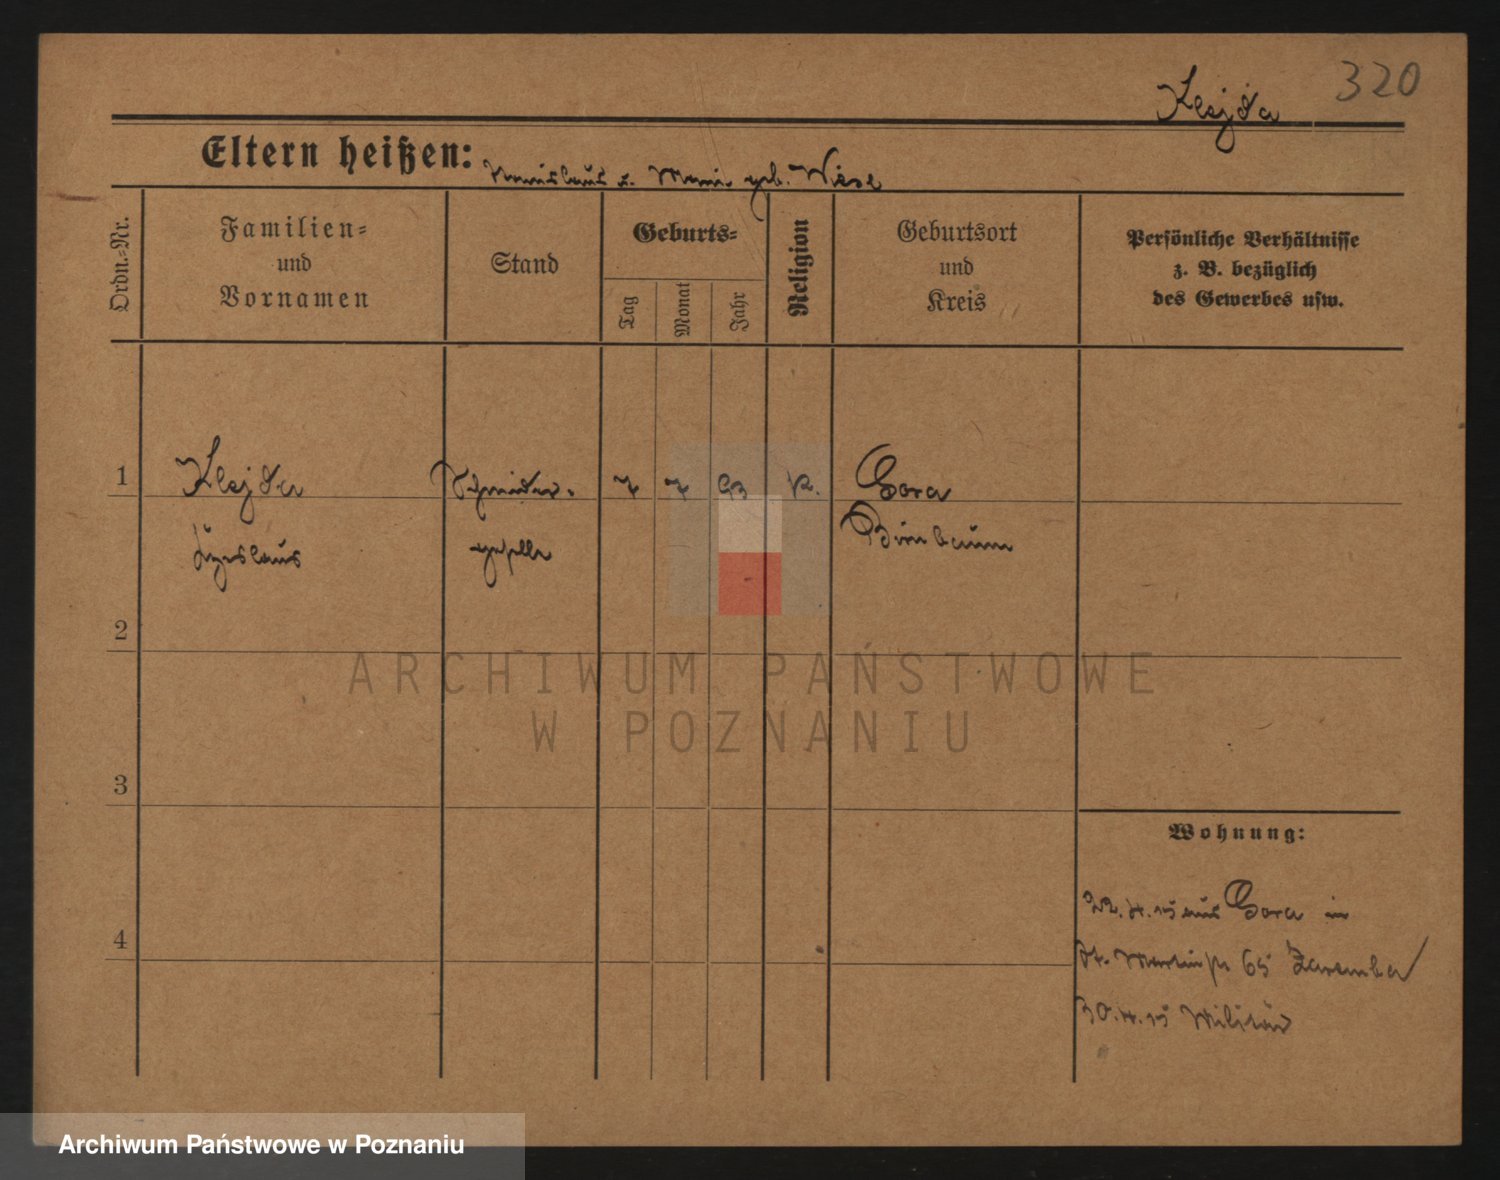 320
Klejda
Eltern heißen: u. Marie geb. Wiese
Ordn.-Nr.
Familien-
und
Vornamen
Stand
Geburts-
Tag
Monat
Jahr
Religion
Geburtsort
und
Kreis
Persönliche Verhältnisse
z. B. bezüglich
des Gewerbes usw.
1 Klejda Schneider- 7 7 93 K. Gora
geselle Birnbaum
2
ARCHIWUM PAŃSTWOWE
W POZNANIU
3
Wohnung:
22.4.15 aus Gora in
St. Martinstr 65 Zaremba
4
30.4.15 Militär
Archiwum Państwowe w Poznaniu